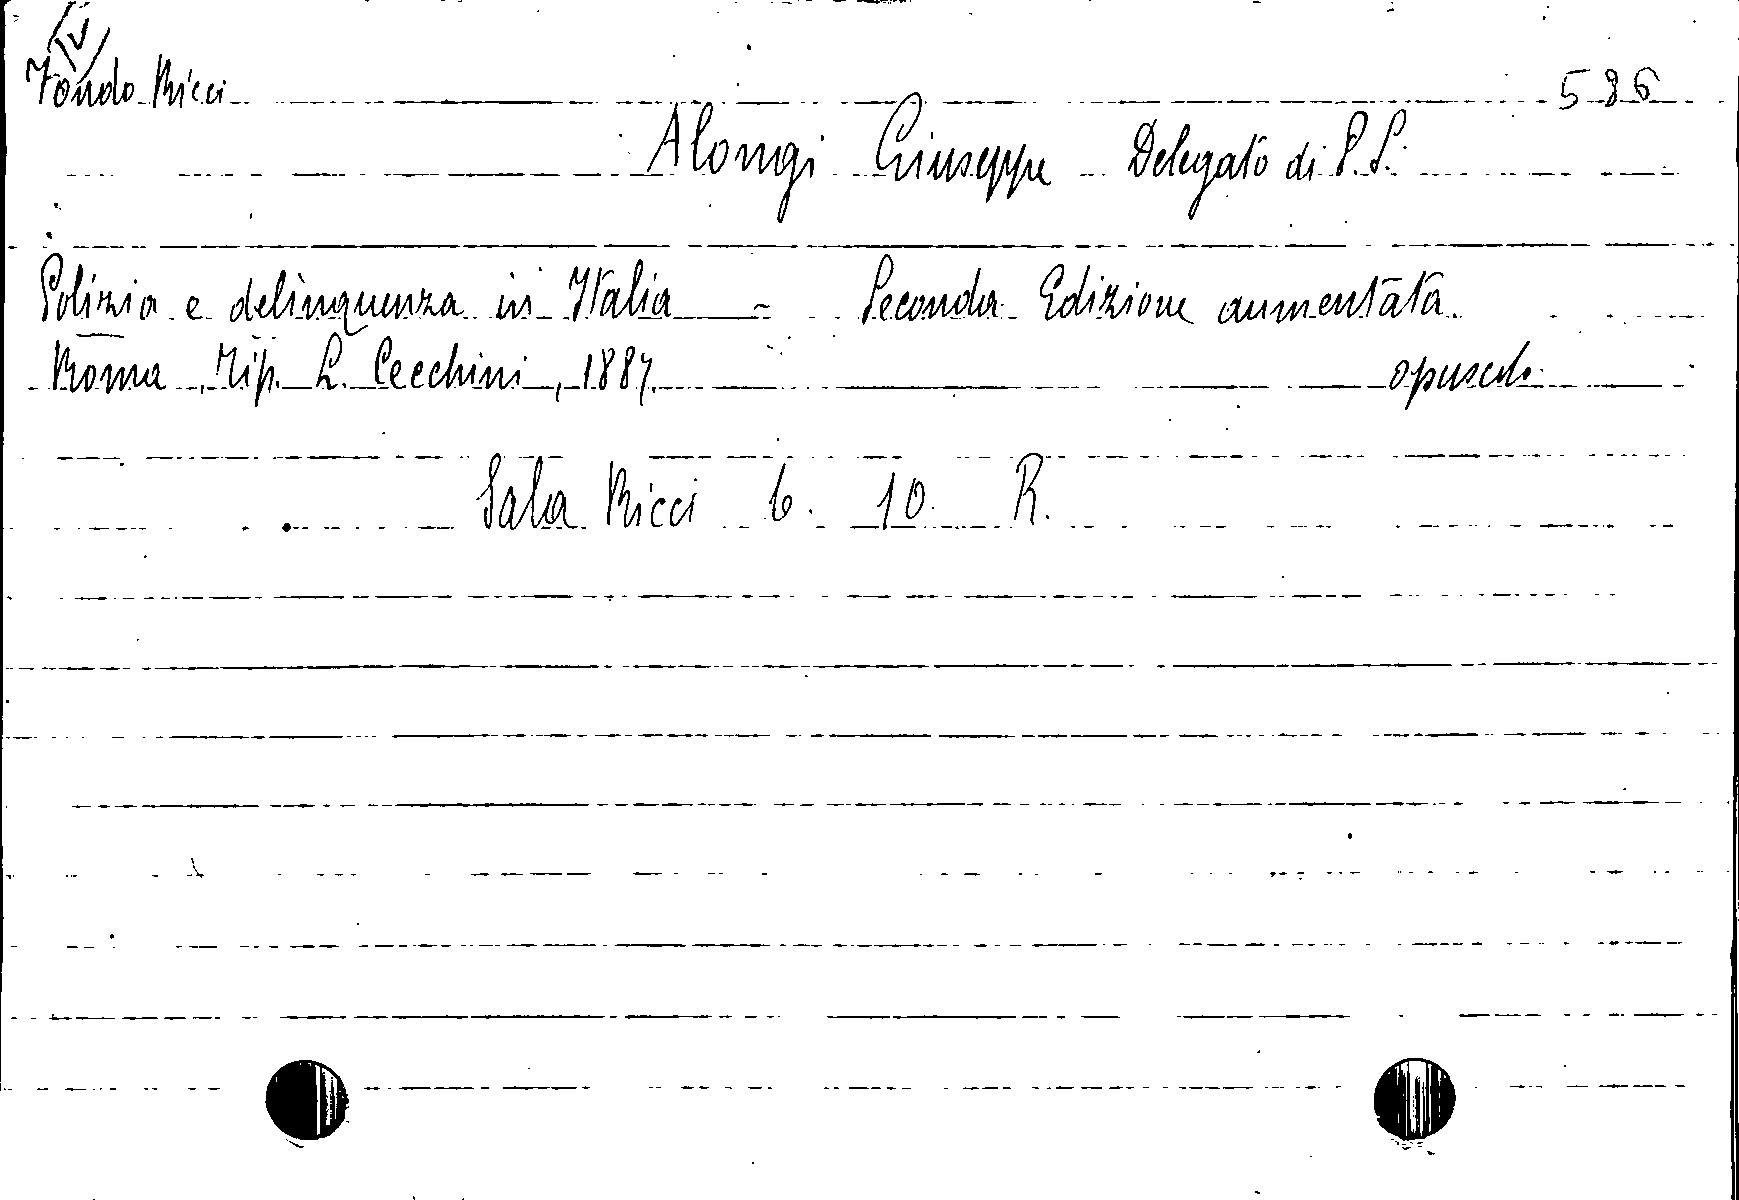 IV
Fondo Ricci 586
Alongi Giuseppe Delegato di P.S.
Polizia e delinquenza in Italia - Seconda Edizione aumentata.
Roma, Tip. L. Cecchini, 1887. opuscolo
Sala Ricci 6. 10. R.